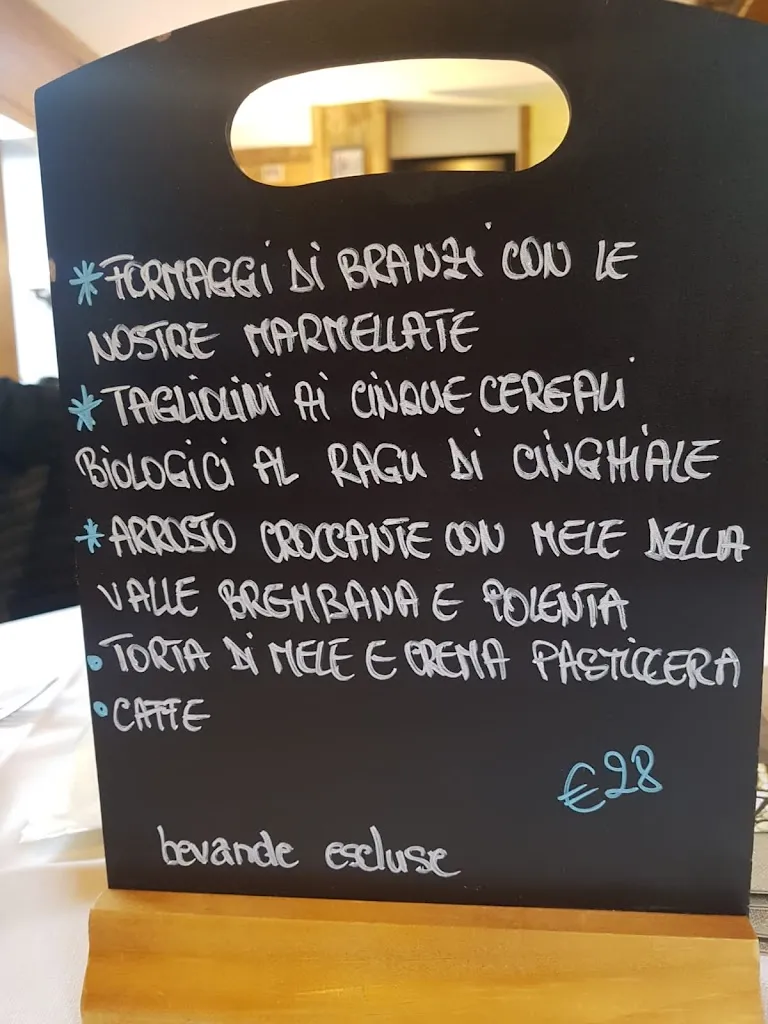 * FORMAGGi Di BRANZi CON LE
NOSTRE MARMELLATE
* TAGLIOLINI Ai CINQUE CEREALI
BiOLOGiCi AL RAGU Di CiNGHiALE
* ARROSTO CROCCANTE CON MELE DELLA
VALLE BREMBANA E POLENTA
• TORTA Di MELE E CREMA PASTiCCERA
• CAFFE
€28
bevande escluse